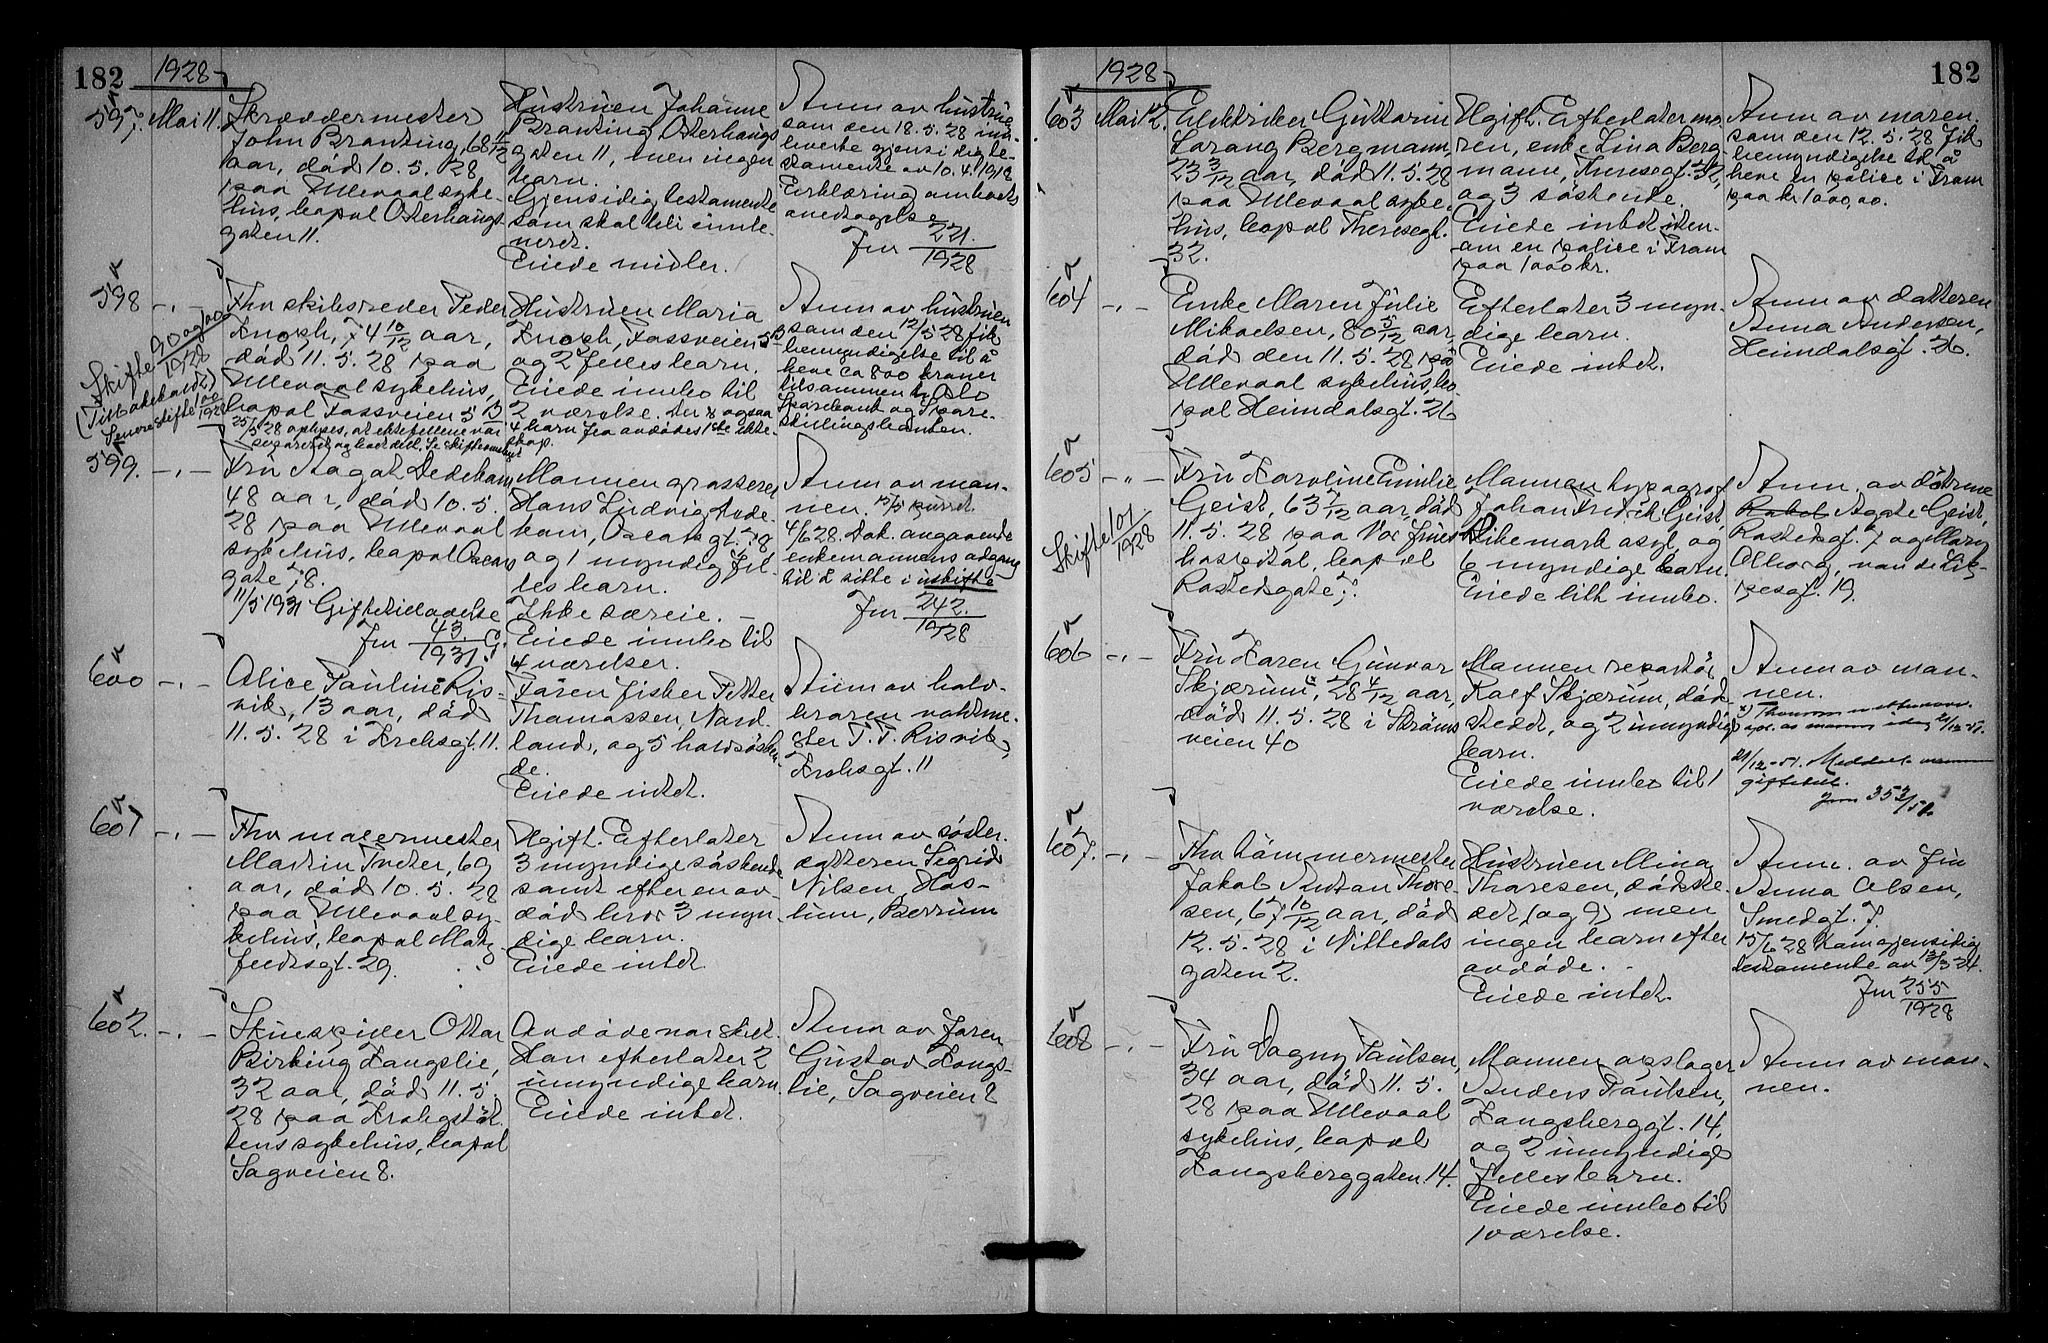 182
1928
597. Mai 11.
Skræddermester
John Branting, 68 11/12
aar, död 10.5.28
paa Ullevaal syke-
hus, bopæl Osterhaugs-
gaten 11.
Hustruen Johanne
Branting, Osterhaugs
gaten 11, men ingen
barn.
Gjensidig testamente
som skal bli innle-
veret.
Eiede midler.
Anm av hustruen
som den 18.5.28 inn
leverte gjensidig te-
stamente av 10.4.1918
Erklæring om
Jnr 221/1928
598 -"-
Skifte 90 og 100/1928
(Tilbakekaldt)
Senere skifte 100/1928
Fhv skibsreder Peder
Knoph, 74 10/12 aar,
död 11.5.28 paa
Ullevaal sykehus,
bopæl Fossveien 5 B
25/5 28 oplyses, at ektefellene var
separeret og hadde delt. Se skifteanmeldt
Hustruen Maria
Knoph, Fossveien 5 B
og 2 felles barn.
Eiede innbo til
2 værelse. Der er ogsaa
4 barn fra avdödes 1ste ekte-
skap.
Anm av hustruen
som den 12/5 28 fik
bemyndigelse til å
heve ca 800 kroner
tilsammen i Oslo
Sparebank og Spare-
skillingsbanken.
599. -"-
Fru Aagot Dedekam
48 aar, död 10.5.
28 paa Ullevaal
sykehus, bopæl Oscars
gate 78.
11/5 1931 Giftetilladelse
Jnr 43/1931. G.
Mannen grosserer
Hans Ludvig Dede-
kam, Oscarsgt. 78
og 1 myndig fel-
les barn.
Ikke særeie.
Eiede innbo til
4 værelser.
Anm av man-
nen. 15/5 purret
4/6 28. Dok. angaaende
enkemannens adgang
til å sitte i uskifte
Jnr 242./1928
600 -"-
Alice Pauline Ris-
vik, 13 aar, död
11.5.28 i Krohsgt. 11.
Faren fisker Petter
Thomassen, Nord-
land, og 5 halvsösken-
de.
Eiede intet.
Anm av halv-
broren vaktme-
ster T. T. Risvik,
Krohsgt. 11
601 -"-
Fhv malermester
Martin Tveter, 69
aar, död 10.5.28
paa Ullevaal sy-
kehus, bopæl Mar
feldtsgt. 29.
Ugift. Efterlater
3 myndige söskende
samt efter en av-
död bror 3 myn-
dige barn.
Eiede intet
Anm av söster-
datteren Sigrid
Nilsen, Has-
lum, Bærum
602. -"-
Skuespiller Ottar
Birking Kongslie,
32 aar, död 11.5.
28 paa Krohgstöt-
tens sykehus, bopæl
Sagveien 8.
Avdöde var skilt.
Han efterlater 2
umyndige barn.
Eiede intet.
Anm av faren
Gustav Kongs-
lie, Sagveien 8
182
1928
603 Mai 12.
Elektriker Guttorm
Bergmann,
23 3/12 aar, död 11.5.28
paa Ullevaal syke-
hus, bopæl Theresegt.
32.
Ugift. Efterlater mo-
ren, enke Lina Berg-
mann, Theresegt. 32,
og 3 söskende.
Eiede intet uten-
om en police i Fram
paa 1000 kr.
Anm av moren.
som den 12.5.28 fik
bemyndigelse til å
heve en police i Fram
paa kr 1000,00.
604 -"-
Enke Maren Julie
Mikaelsen, 80 5/12 aar,
död den 11.5.28 på
Ullevaal sykehus, bo-
pæl Heimdalsgt. 26
Efterlater 3 myn-
dige barn.
Eiede intet.
Anm av datteren
Anna Andersen,
Heimdalsgt. 26.
605 -"-
Skifte 101/1928
Fru Karoline Emilie
Geist, 63 7/12 aar, död
11.5.28 paa Vor Frues
hospital, bopæl
Rostedsgate 7.
Mannen typograf
Johan Fredrik Geist,
Dikemark asyl, og
6 myndige barn.
Eiede litt innbo.
Anm. av dötrene
Agate Geist,
Rostedsgt. 7 og Mary
Olborg, van de Lip-
pesgt. 19.
606 -"-
Fru Karen Gunvor
Skjærum, 28 4/12 aar,
död 11.5.28 i Ströms
veien 40
Mannen repartör
Rolf Skjærum, död-
stedet, og 2 umyndige
barn.
Eiede innbo til 1
værelse.
Anm av man-
nen.
21/12-51. Meddelt mannen
giftetill.
Jnr 352/51.
607. -"-
Fhv tömmermester
Jakob Anton Thore-
sen, 67 10/12 aar, död
12.5.28 i Nittedals
gaten 2.
Hustruen Mina
Thoresen, dödste-
det, (og ?) men
ingen barn efter
avdöde.
Eiede intet.
Anm. av fru
Anna Olsen,
Smedgt. 7
15/6 28 kom gjensidig
testamente av 13/3 24.
Jnr 255/1928
608 -"-
Fru Dagny Paulsen,
34 aar, död 11.5.
28 paa Ullevaal
sykehus, bopæl
Kongsberggaten 14.
Mannen avislager
Anders Paulsen,
Kongsberggt. 14,
og 2 umyndige
felles barn.
Eiede innbo til
1 værelse.
Anm av man-
nen.